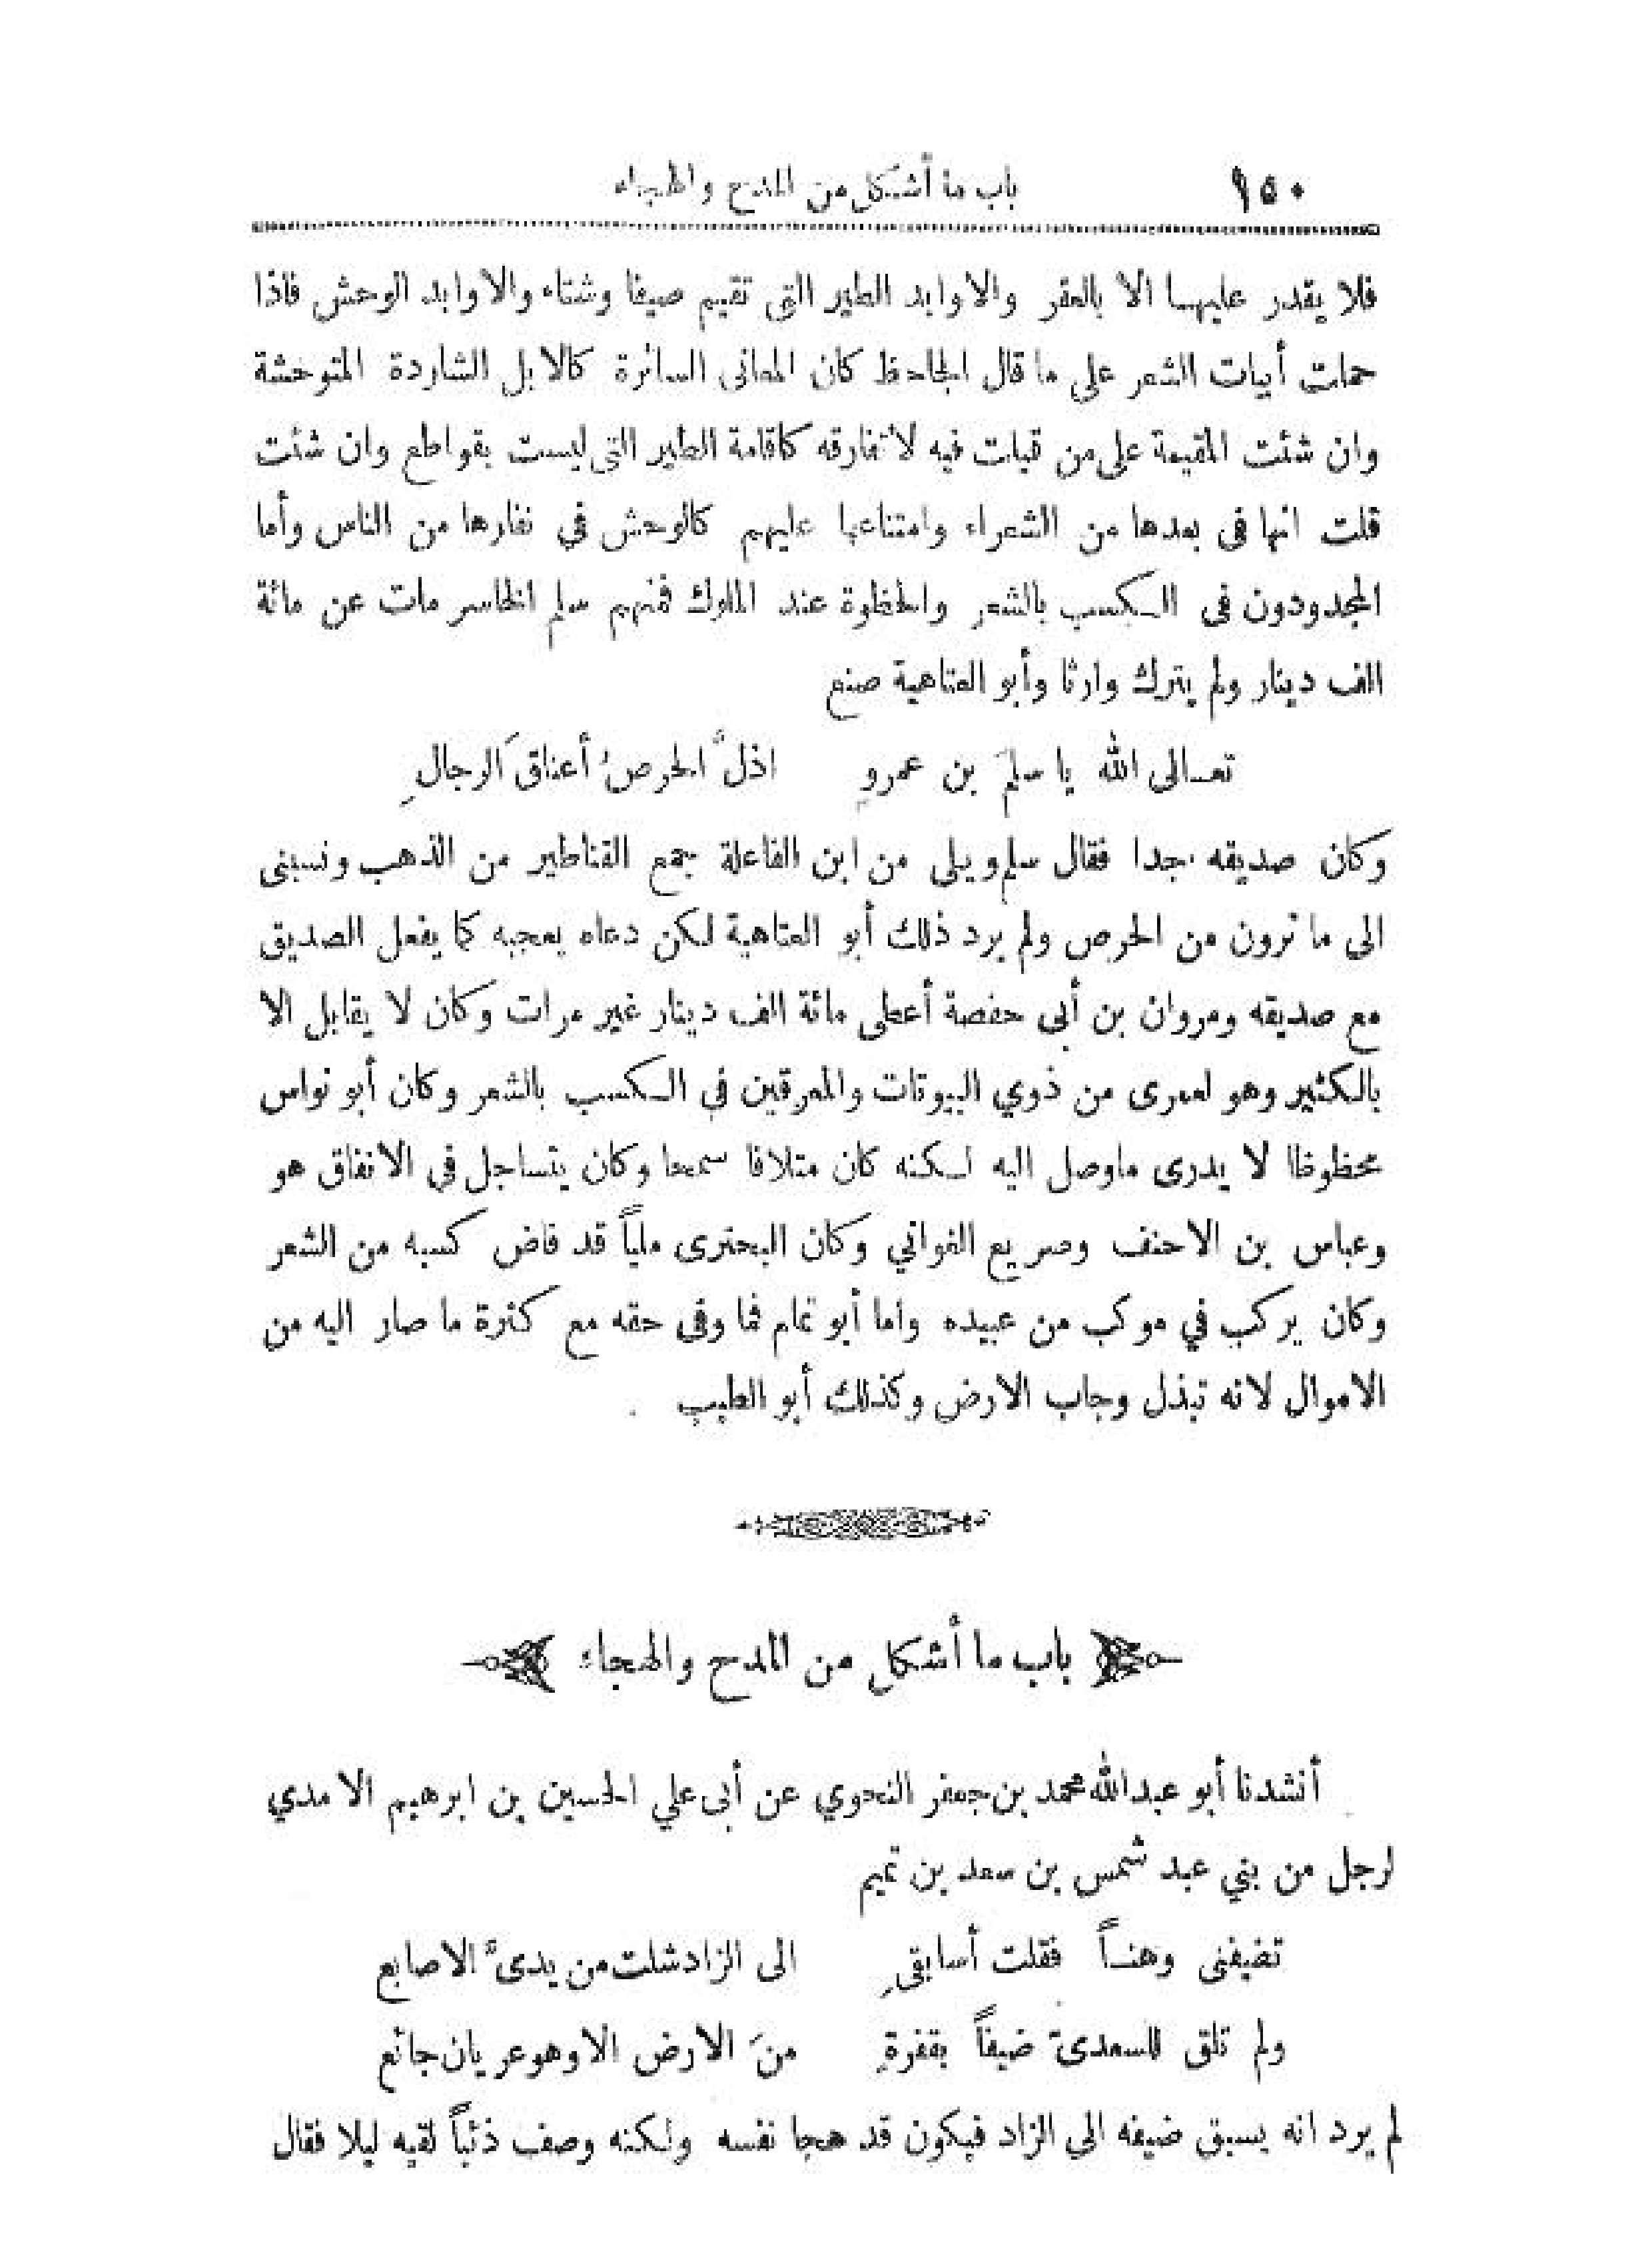 ١٥٠ باب ما أشكل من المدح والهجاء
فلا يقدر عليها الا بالعقر والاوابد الطير التى تقيم صيفا وشتاء والاوابد الوحش فاذا
حملت أبيات الشعر على ما قال الجاحظ كان المعانى السائرة كالابل الشاردة المتوحشة
وان شئت المقيمة على من قيلت فيه لا تفارقه كاقامة الطير التى ليست بقواطع وان شئت
قلت انها فى بعدها من الشعراء وامتناعها عليهم كالوحش في نفارها من الناس وأما
المجدودون فى التكسب بالشعر والحظوة عند الملوك فمنهم سلم الخاسر مات عن مائة
الف دينار ولم يترك وارثا وأبو العتاهية صنع
تعالى الله يا سلمَ بن عمروٍ اذلَّ الحرصُ أعناقَ الرجالِ
وكان صديقه جدا فقال سلم ويلى من ابن الفاعلة جمع القناطير من الذهب ونسبنى
الى ما ترون من الحرص ولم يرد ذلك أبو العتاهية لكن دعاه يعجبه كما يفعل الصديق
مع صديقه ومروان بن أبى حفصة أعطى مائة الف دينار غير مرات وكان لا يقابل الا
بالكثير وهو لعمرى من ذوي البيوتات والمعرقين في التكسب بالشعر وكان أبو نواس
محظوظا لا يدرى ماوصل اليه لكنه كان متلافا سمحا وكان يتساجل في الانفاق هو
وعباس بن الاحنف وصريع الغواني وكان البحترى ملياً قد فاض كسبه من الشعر
وكان يركب في موكب من عبيده واما أبو تمام فما وفى حقه مع كثرة ما صار اليه من
الاموال لانه تبذل وجاب الارض وكذلك أبو الطيب
باب ما أشكل من المدح والهجاء
أنشدنا أبو عبدالله محمد بن جعفر النحوي عن أبى علي الحسين بن ابرهيم الامدي
لرجل من بني عبد شمس بن سعد بن تميم
تضيفنى وهناً فقلت أسابقىِ الى الزاد شلت من يدىَّ الاصابع
ولم تلق للسعدىّ ضيفاً بقفرةٍ منَ الارض الا وهو عريان جائع
لم يرد انه يسبق ضيفه الى الزاد فيكون قد هجا نفسه ولكنه وصف ذئباً لقيه ليلا فقال